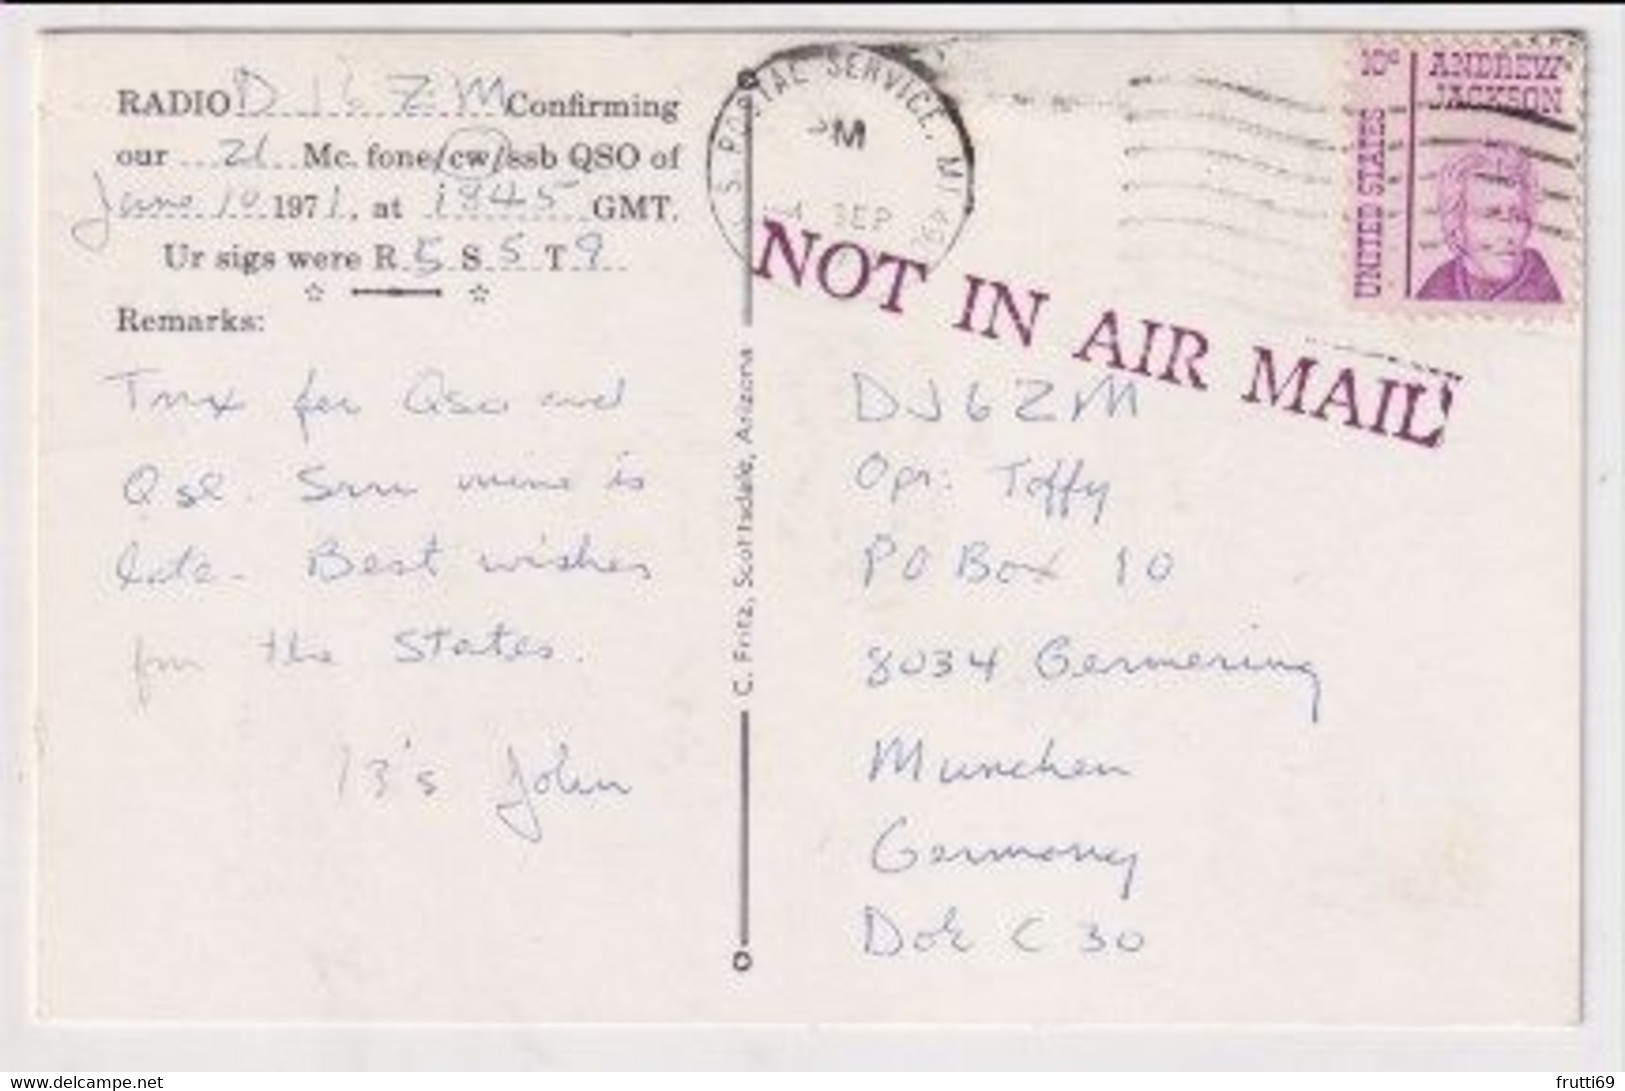 RADIO DJ6ZM Confirming
our 21 Mc. fone/cw/ssb QSO of
June 10 1971, at 1845 GMT.
Ur sigs were R 5 S 5 T 9
☆ ☆
Remarks:
Tnx for Qso and
Qsl. Srri mine is
late. Best wishes
fm the States.
73's John
C. Fritz, Scottsdale, Arizona
U.S. POSTAL SERVICE, MI
PM
SEP
NOT IN AIR MAIL
10c ANDREW
JACKSON
UNITED STATES
DJ6ZM
Opr: Toffy
PO Box 10
8034 Germering
Munchen
Germany
Dok C 30
www.delcampe.net
frutti69